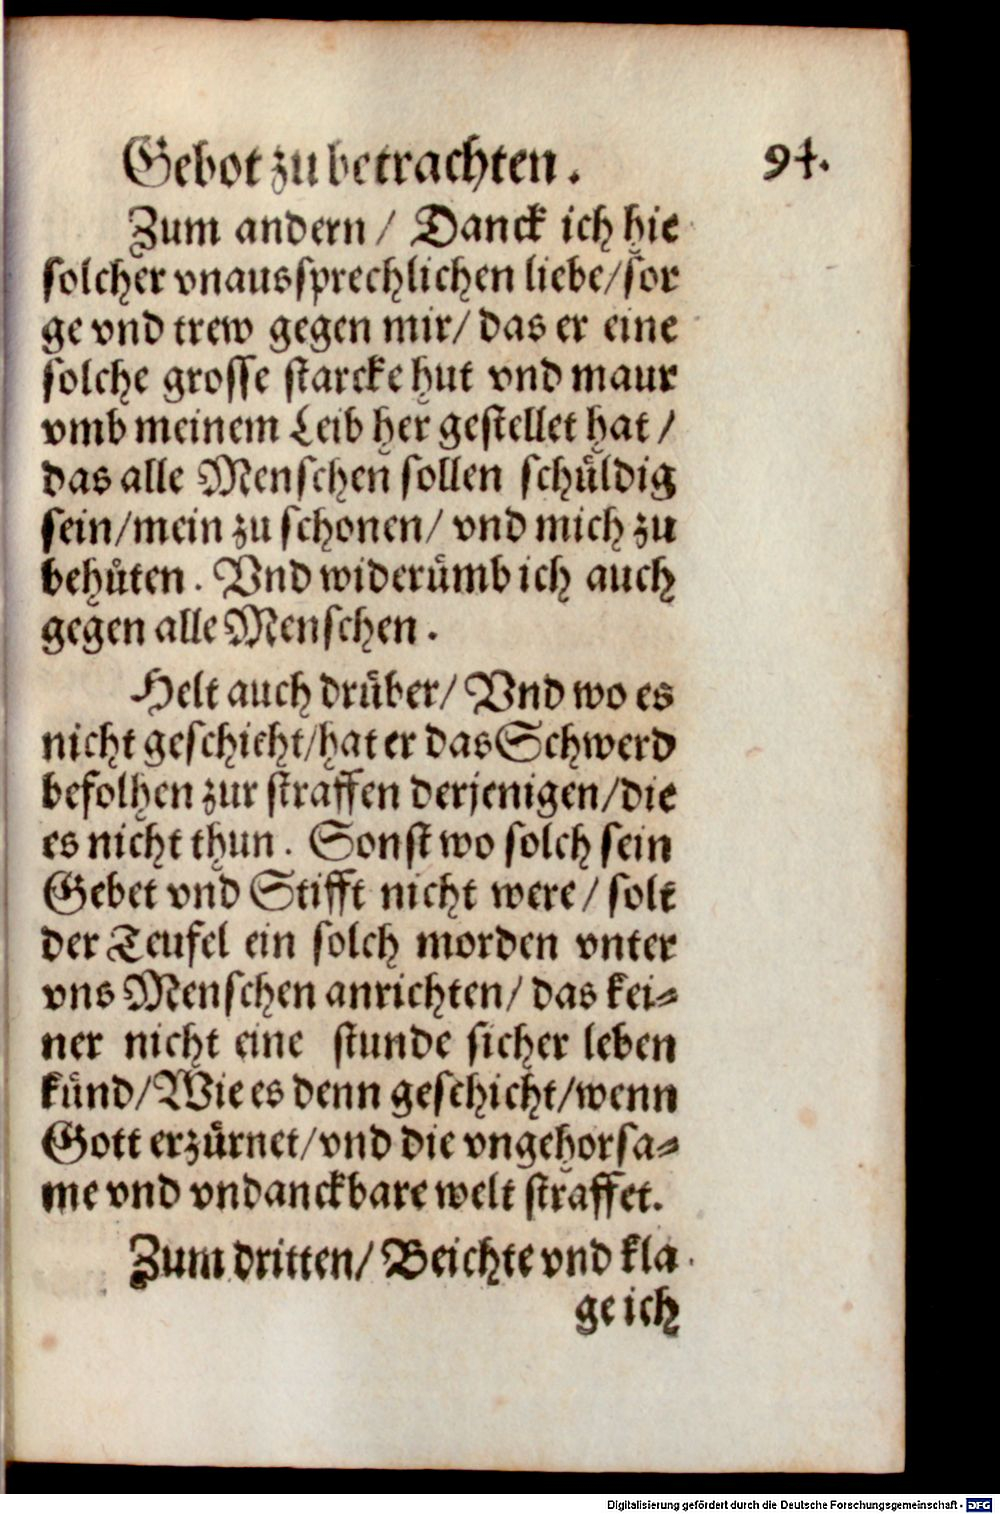 Gebot zu betrachten. 94.
Zum andern / Danck ich hie
solcher vnaussprechlichen liebe/sor
ge vnd trew gegen mir/ das er eine
solche grosse starcke hut vnd maur
vmb meinem Leib her gestellet hat /
das alle Menschen sollen schüldig
sein/mein zu schonen/ vnd mich zu
behüten. Vnd widerümb ich auch
gegen alle Menschen.
Helt auch drüber/ Vnd wo es
nicht geschieht/hat er das Schwerd
befolhen zur straffen derjenigen/die
es nicht thun. Sonst wo solch sein
Gebet vnd Stifft nicht were/ solt
der Teufel ein solch morden vnter
vns Menschen anrichten/ das kei-
ner nicht eine stunde sicher leben
künd/Wie es denn geschicht/wenn
Gott erzürnet/vnd die vngehorsa-
me vnd vndanckbare welt straffet.
Zum dritten/ Beichte vnd kla
ge ich
Digitalisierung gefördert durch die Deutsche Forschungsgemeinschaft - DFG